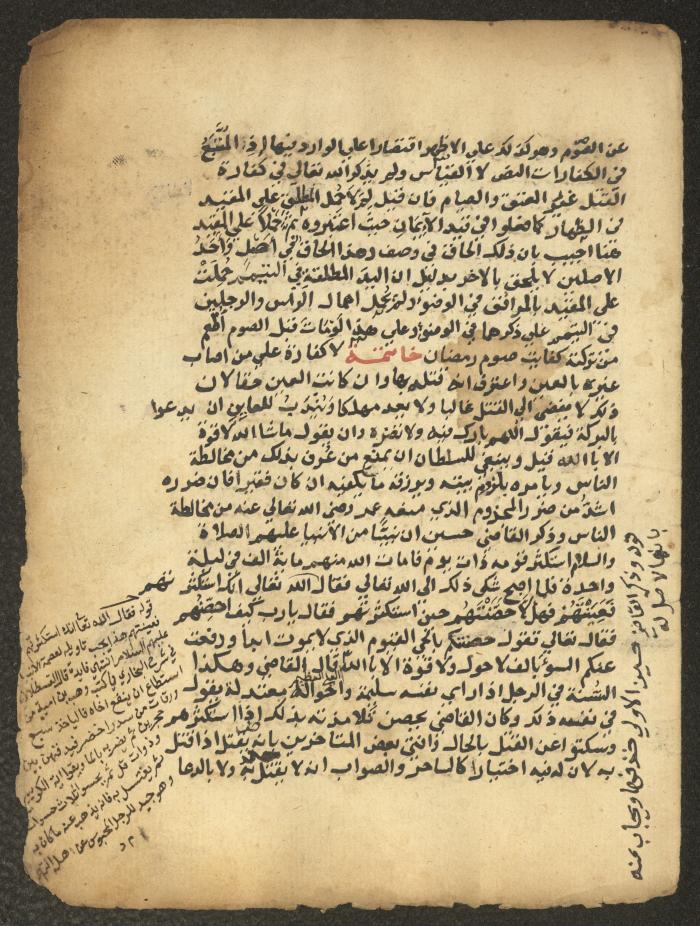 عن الصوم وهو كذلك على الاظهر اقتصارا على الوارد فيها اذ المتبع
في الكفارات النص لا القياس ولم يذكر الله تعالى في كفارة
القتل غير العتق والصيام فان قيل لم لا حمل المطلق على المقيد
في الظهار كما فعلوا في قيد الايمان حيث اعتبروه ثم حملا على المقيد
هنا اجيب بان ذلك الحاق في وصف وهذا الحاق في اصل واحد
الاصلين لا يلحق بالاخر بدليل ان اليد المطلقة في التيمم حملت
على المقيد بالمرافق في الوضوء ولم يحمل اهمال الراس والرجلين
في التيمم على ذكرهما في الوضوء وعلى هذا لو مات قبل الصوم اطعم
من تركته كفايت صوم رمضان خاتمة لا كفارة على من اصاب
غيره بالعين واعترف انه قتله بها وان كانت العين حقا لان
ذلك لا يفضي الى القتل غالبا ولا يعد مهلكا ويندب للعاين ان يدعوا
بالبركة فيقول اللهم بارك فيه ولا تضره وان يقول ماشا الله لا قوة
الا بالله قيل وينبغي للسلطان ان يمنع من عرف بذلك من مخالطة
الناس ويامره بلزوم بيته ويرزقه ما يكفيه ان كان فقيرا فان ضرره
اشد من ضرر المجذوم الذي منعه عمر رضي الله تعالى عنه من مخالطة
الناس وذكر القاضي حسين ان نبيا من الانبيا عليهم الصلاة
والسلام استكثر قومه ذات يوم فامات الله منهم ماية الف في ليلة
واحدة فلما اصبح شكى ذلك الى الله تعالى فقال الله تعالى انك استكثرتهم
فعينتهم فهلا حصنتهم حين استكثرتهم فقال يارب كيف احصنهم
فقال تعالى تقول حصنتكم بالحي القيوم الذي لا يموت ابدا ودفعت
عنكم السوء بالف لا حول ولا قوة الا بالله العلي العظيم قال القاضي وهكذا
السنة في الرجل اذا راى نفسه سليمة واحواله معتدلة يقول
في نفسه ذلك وكان القاضي يحصن تلامذته بذلك اذا استكثرهم
وسكتوا عن القتل بالحال وافتى بعض المتاخرين بانه يقتل اذا قتل
به لان له فيه اختيارا كالساحر والصواب انه لا يقتل به ولا بالدعا
قوله وذكر القاضي حسين الاولى حذفها ويجاب عنه
بانها لا اصل له
قوله فقال الله تعالى انك استكثرتهم
فعينتهم هذا يجب تاويله لعصمة الانبيا
عليهم السلام انتهى فايدة قال القسطلاني
في شرح البخاري
استطاع ان ينفع اخاه فالياخذ سبع
ورقات من سدر اخضر فيدقهن بين
حجرين ثم يضربه بالما ويقرا اية الكرسي
وذوات قل ثم يحسو ثلاث حسوات
ثم يغتسل به فانه يذهب عنه ما كان به
وهو جيد للرجل المحبوس عن اهله انتهى
م د